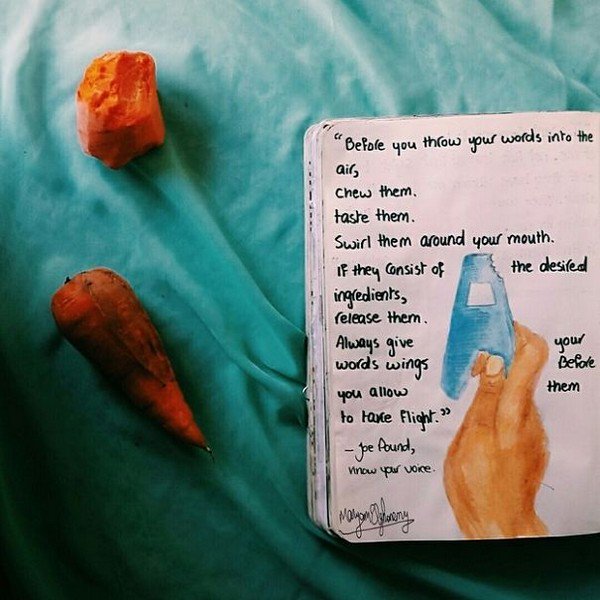 “Before you throw your words into the
air,
chew them.
taste them.
Swirl them around your mouth.
If they consist of the desired
ingredients,
release them.
Always give your
words wings before
you allow them
to take flight.”
- Joe Pound,
know your voice.